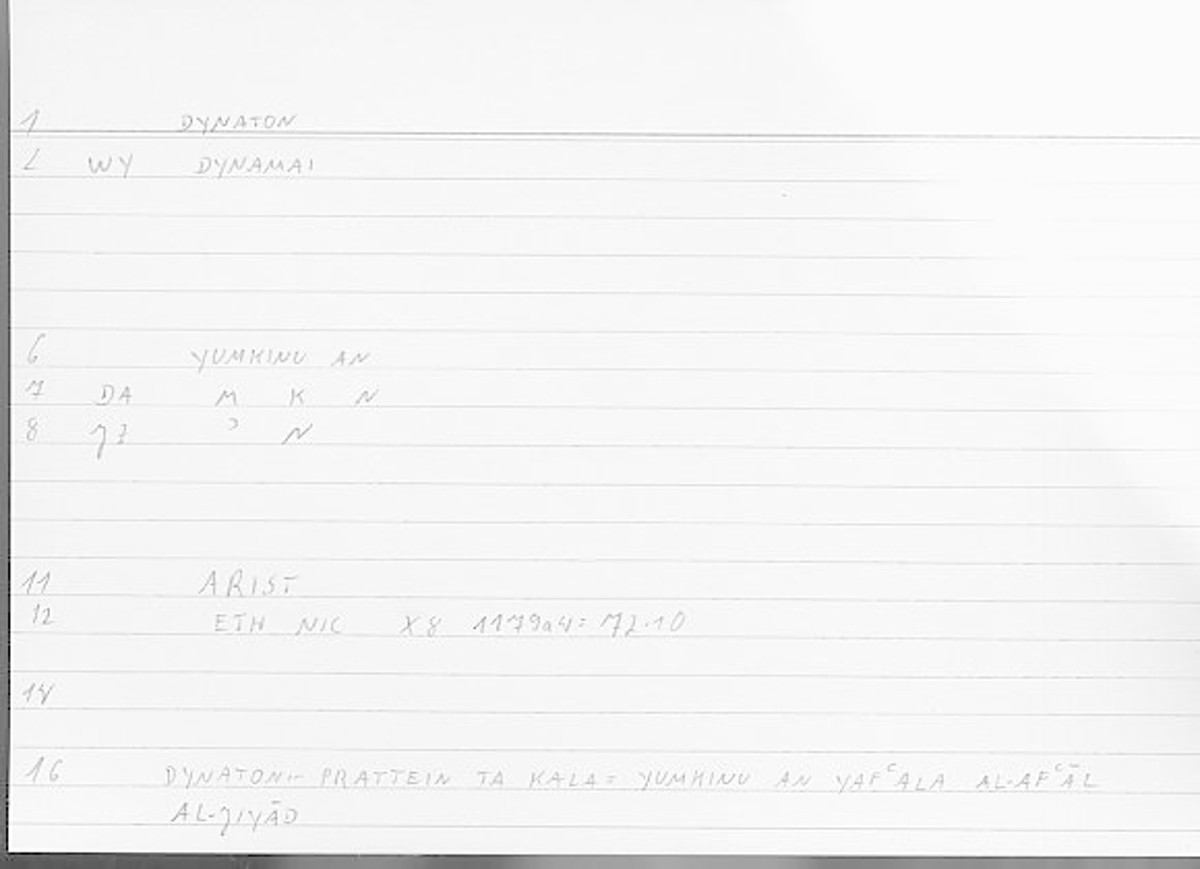 1 DYNATON
2 WY DYNAMAI
6 YUMKINU AN
7 DA M K N
8 ʾ N
11 ARIST
12 ETH NIC X8 1179a4= 72.10
14
16 DYNATON:- PRATTEIN TA KALA= YUMKINU AN YAFʿALA AL-AFʿĀL
AL-ǧIYĀD